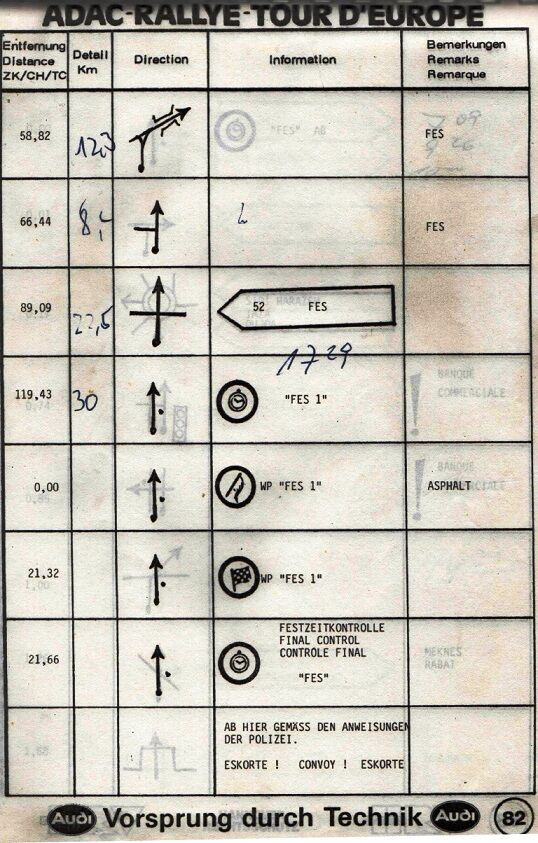 ADAC-RALLYE-TOUR D'EUROPE
Entfernung
Distance
ZK/CH/TC
Detail
Km
Direction
Information
Bemerkungen
Remarks
Remarque
58,82
"FES" AB
FES
66,44
FES
89,09
22,6
52 FES
1729
119,43
30
"FES 1"
BANQUE
COMMERCIALE
0,00
WP "FES 1"
ASPHALT
21,32
WP "FES 1"
21,66
FESTZEITKONTROLLE
FINAL CONTROL
CONTROLE FINAL
"FES"
MEKNES
RABAT
AB HIER GEMÄSS DEN ANWEISUNGEN
DER POLIZEI.
ESKORTE ! CONVOY ! ESKORTE
Audi Vorsprung durch Technik Audi 82